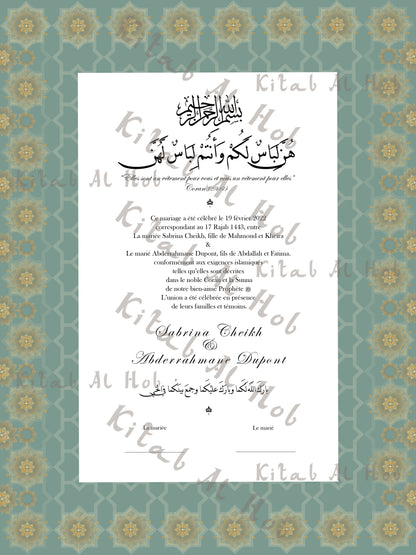 Kitab Al Hob
بسم الله الرحمن الرحيم
هُنَّ لِبَاسٌ لَكُمْ وَأَنْتُمْ لِبَاسٌ لَهُنَّ
"Elles sont un vêtement pour vous et vous un vêtement pour elles"
Coran
Ce mariage a été célébré le 19 février 2022
correspondant au 17 Rajab 1443, entre
La mariée Sabrina Cheikh, fille de Mahmoud et Kheira
&
Le marié Abderrahmane Dupont, fils de Abdallah et Fatima.
conformément aux exigences islamiques
telles qu'elles sont décrites
dans le noble Coran et la Sunna
de notre bien-aimé Prophète ﷺ
L'union a été célébrée en présence
de leurs familles et témoins.
Sabrina Cheikh
&
Abderrahmane Dupont
بارك الله لكما وبارك عليكما وجمع بينكما في الخير
La mariée Le marié
Kitab Al Hob
Kitab Al Hob
Kitab Al Hob
Kitab Al Hob
Kitab Al Hob